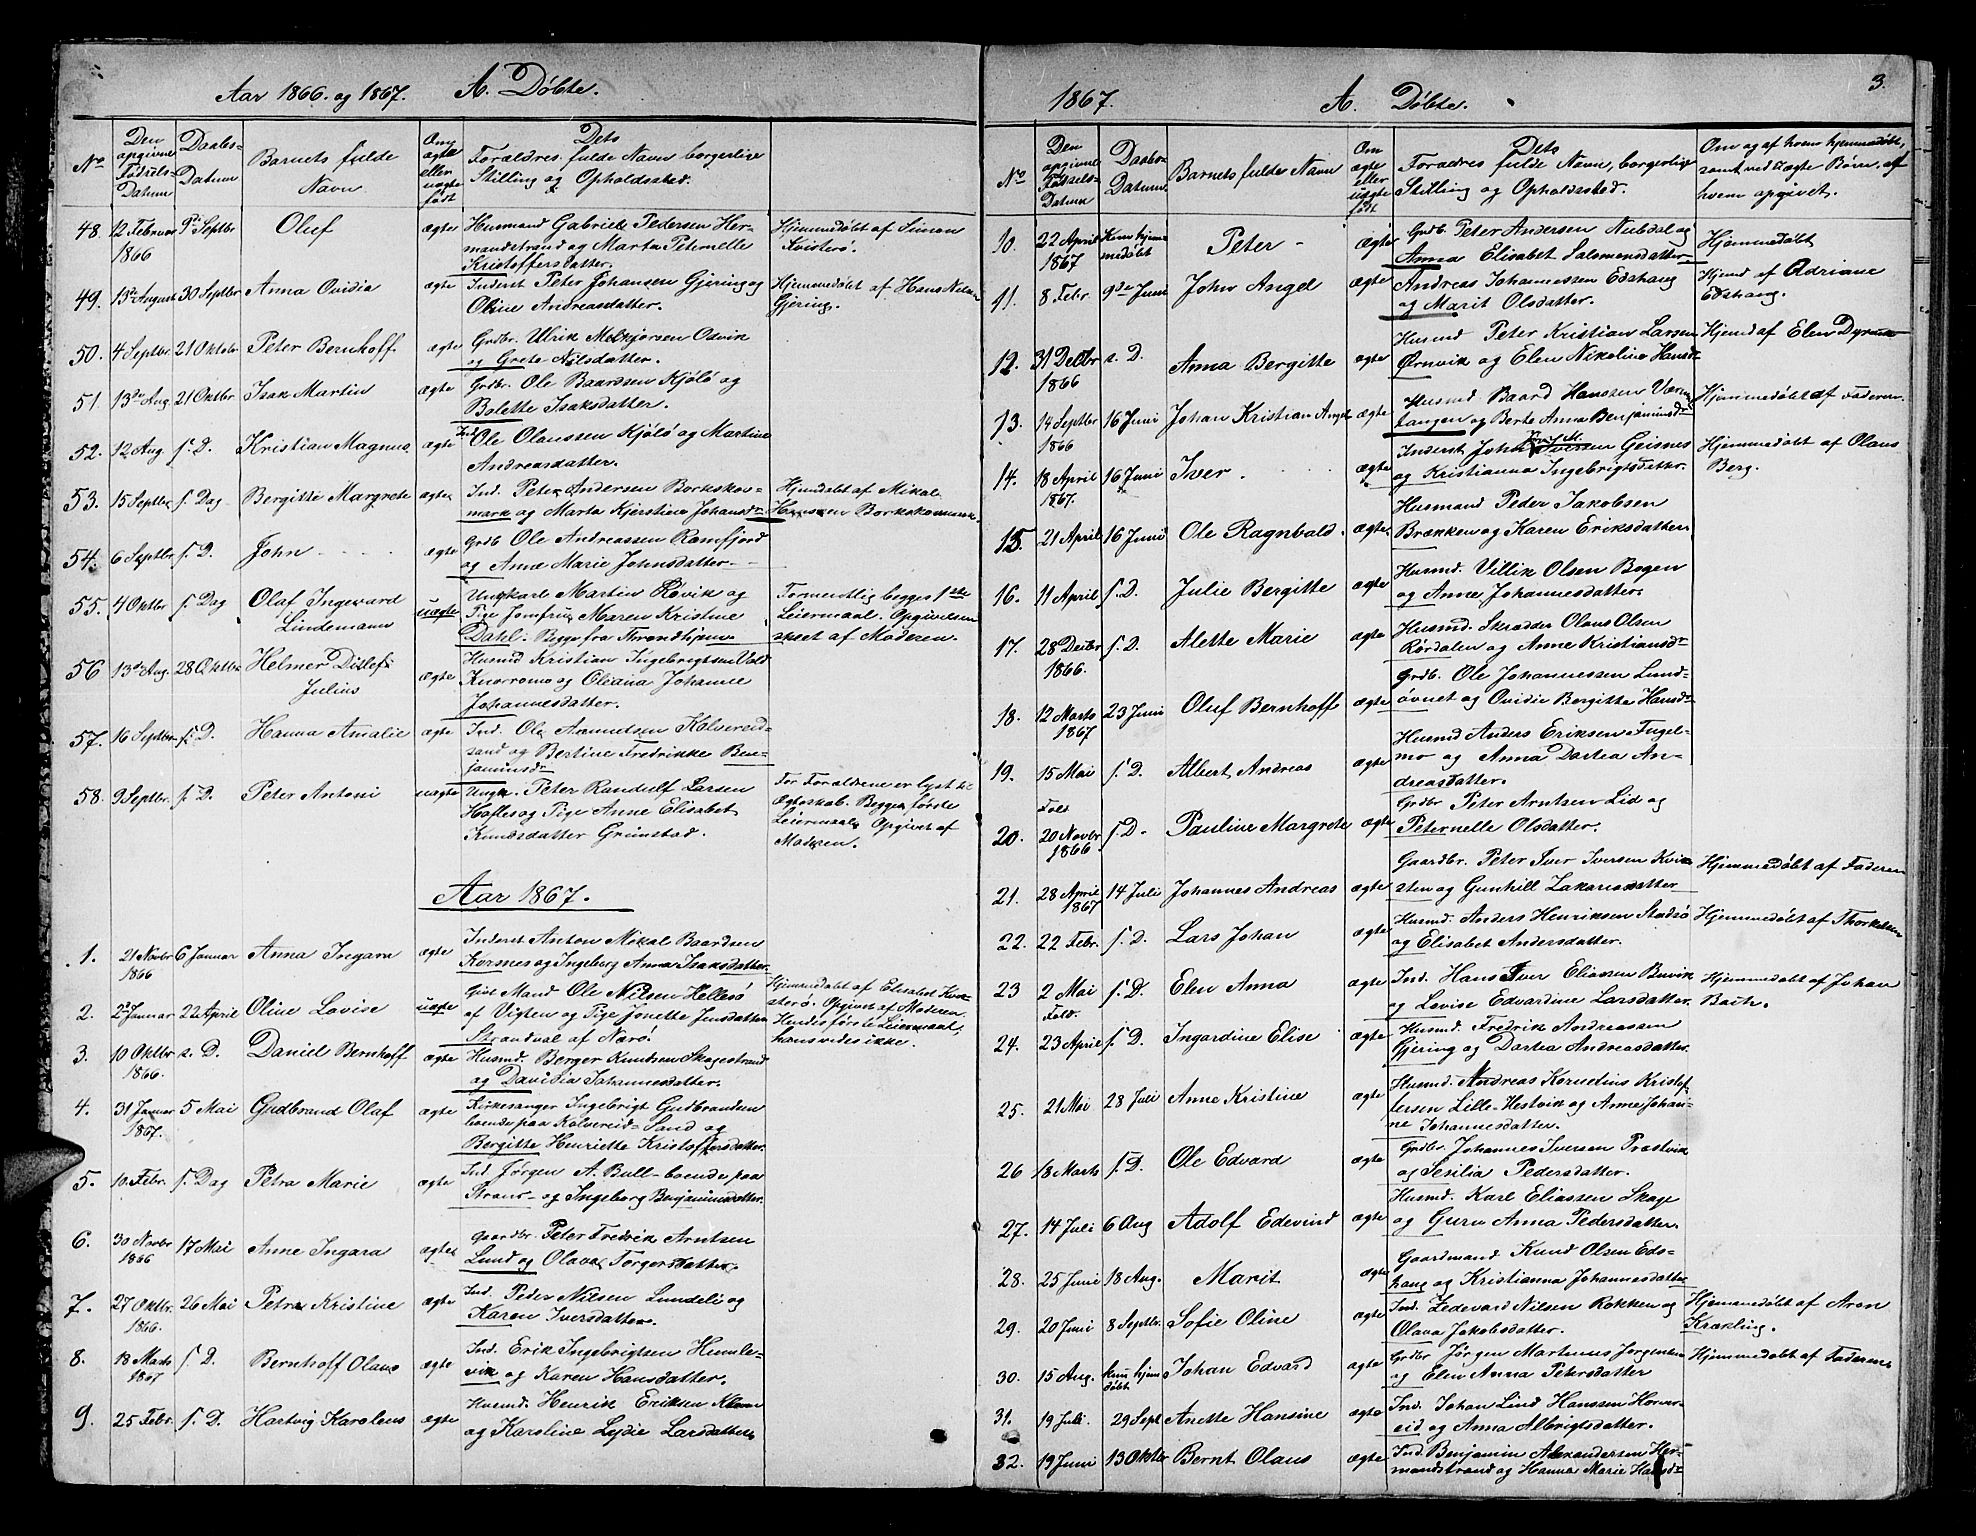 Aar 1866 og 1867. A. Døbte.
No
Den opgivne Fødsels-Datum
Daabs-Datum
Barnets fulde Navn
Om ægte eller uægte født
Dets Forældres fulde Navn borgerlige Stilling og Opholdssted.
48. 12 Februar 1866 9de Septbr Oluf ægte Husmand Gabriel Pedersen Her-
mandstrand og Marta Peternelle
Kristoffersdatter.
Hjemmedøbt af Simon
49. 13de August 30 Septbr Anna Ovidia ægte Inderst Peter Johansen Gjering og
Oline Andreasdatter.
Hjemmedøbt af Hans
Gjering.
50. 4 Septbr 21 Oktobr Peter Bernhoff ægte Grdbr. Ulrik Melkjorsen Osvik
og Grete Nilsdatter.
51. 13de Aug. 21 Oktbr Isak Martin ægte Grdbr. Ole Baardsen Kjølø og
Bolette Isaksdatter.
52. 12 Aug. s. D. Kristian Magnus ægte Ind. Ole Olaussen Kjølø og Martine
Andreasdatter.
53. 15 Septbr s. Dag Bergitte Margrete ægte Ind. Peter Andersen Borkskov-
mark og Marta Kjerstine Johansdr
Hjemdøbt af Mikal
Hanssen
54. 6 Septbr s. D. John ægte Grdb Ole Andreassen Ramfjord
og Anne Marie Johnsdatter
55. 4 Oktbr s. Dag Olaf Ingevard
Lindemann
uægte Ungkarl Martin Røvik og
Pige Jomfru Maren Kristine
Dahl. Begge fra Throndhjem.
Formentlig begges 1ste
Leiermaal. Opgivelsen
skeet af Moderen.
56 13de Aug. 28 Oktbr Helmer Ditlef
Julius
ægte Husmd Kristian Ingebrigtsen
og Oliana Johanne
Johannesdatter.
57. 16 Septbr s. D. Hanna Amalie ægte Ind. Ole Aamundsen Kolvereid-
sand og Bertine Fredrikke Ben-
jaminsdr
58. 9 Septbr. s. D. Peter Antoni uægte Ungk. Peter Randulf Larsen
Hofles og Pige Anne Elisabet
Knudsdatter Grünstad.
For Forældrene er lyst til
Ægteskab. Begges første
Leiermaal. Opgivet af
Moderen.
Aar 1867.
1. 21 Novbr 1866 6 Januar Anna Ingara ægte Inderst Anton Mikal Baardsen
Kornes og Ingeborg Anna Isaksdatter.
2. 2de Januar 22 April Oline Lovise uægte Gift Mand Ole Nilsen Hellesø
af Vigten og Pige Jonette Jensdatter
Strandval af Nærø
Hjemmedøbt af Elisabet
Opgivet af Moderen.
Hendes første Leiermaal,
hans vides ikke.
3. 10 Oktbr 1866. s. D. Daniel Bernhoff ægte Husmd. Berger Knudsen Skagestrand
og Davidia Johannesdatter.
4. 31 Januar 1867. 5 Mai Gudbrand Olaf ægte Kirkesanger Ingebrigt Gudbrandsen
boende paa Kolvereid-Sand og
Bergitte Henriette Kristoffersdatter.
5. 10 Febr. s. Dag Petra Marie ægte Ind. Jørgen A. Bull boende paa
Strand og Ingeborg Benjaminsdatter.
6. 30 Novbr 1866 17 Mai Anne Ingara ægte Gaardbr. Peter Fredrik Arntsen
Lund og Olava Torgersdatter.
7. 27 Oktbr. 1866. 26 Mai Petra Kristine ægte Ind. Peder Nilsen Lundeli og
Karen Iversdatter.
8. 18 Marts 1867 s. D. Bernhoff Olaus ægte Ind. Erik Ingebrigtsen Humle-
vik og Karen Hansdatter.
9. 25 Febr. s. D. Hartvig Karolius ægte Husmd. Henrik Eriksen
og Karoline Lydie Larsdatter
1867. A. Døbte. 3.
No
Den opgivne Fødsels-Datum
Daabs-Datum
Barnets fulde Navn
Om ægte eller uægte født
Dets Forældres fulde Navn, borgerlige Stilling og Opholdssted.
Om og af hvem hjemmedøbt, samt ved uægte Børn, af hvem opgivet.
10. 22 April 1867 Kun hjem-
medøbt Peter ægte Grdb. Peter Andersen Nubdal og
Anna Elisabet Salomonsdatter
Hjemmedøbt
11. 8 Febr. 9de Juni John Angel ægte Andreas Johannessen Edshaug
og Marit Olsdatter.
Hjemd af Adriane
Edshaug.
12. 31 Decbr 1866 s. D. Anna Bergitte ægte Husmd Peter Kristian Larsen
Ørnvik og Elen Nikoline Hansd
Hjemd af Elen
13. 14 Septbr 1866 16 Juni Johan Kristian Angel ægte Husmd Baard Hanssen
tangen og Berte Anna Benjaminsdr
Hjemmedøbt af Faderen.
14. 18 April 1867. 16 Juni Iver ægte Inderst Johan Iversen Geisnes
og Kristianna Ingebrigtsdatter.
Hjemmedøbt af Olaus
Berg.
15. 21 April 16 Juni Ole Ragnbald. ægte Husmand Peder Jakobsen
Brækken og Karen Eriksdatter
16. 11 April s. D. Julie Bergitte ægte Husmd. Villik Olsen Bogen
og Anne Johannesdatter.
17. 28 Decbr 1866. s. D. Alette Marie ægte Husmd. Skrædder Olaus Olsen
Rørdalen og Anne Kristiansdr
18. 12 Marts 1867 23 Juni Oluf Bernhoff ægte Grdb. Ole Johannessen Lund-
øvnet og Ovidie Bergitte Hansdr
19. 15 Mai s. D. Albert Andreas ægte Husmd Anders Eriksen Fugel-
mo og Anna Dortea An-
dreasdatter.
20. 20 Novbr 1866. s. D. Pauline Margrete ægte Grdbr Peter Arntsen Lid og
Peternelle Olsdatter.
21. 28 April 1867 14 Juli Johannes Andreas ægte Gaardbr. Peter Iver Iversen Kvis-
sten og Gunhill Zakariasdatter
Hjemmedøbt af Faderen
22. 22 Febr. s. D. Lars Johan ægte Husmd. Anders Henriksen Stadsø
og Elisabet Andersdatter.
Hjemmedøbt af
23 2 Mai s. D. Elen Anna ægte Ind. Hans Iver Eliassen Buvik
og Lovise Edvardine Larsdatter.
Hjemmedøbt af Johan
Bach.
24. 23 April s. D. Ingardine Elise ægte Husmd. Fredrik Andreassen
Gjering og Dortea Andreasdatter.
25. 21 Mai 28 Juli Anne Kristine ægte Husmd. Andreas Kornelius Kristof-
fersen Lille-Hestvik og Anne Johan-
ne Johannesdatter.
26 18 Marts s. D. Ole Edvard ægte Grdbr Johannes Iversen Præstvik
og Sesilia Pedersdatter.
27. 14 Juli 6 Aug Adolf Edevind ægte Husmd. Karl Eliassen Skage
og Guru Anna Pedersdatter.
28. 25 Juni 18 Aug. Marit ægte Gaardmand Knud Olsen Eds-
haug og Kristianna Johannesdatter
29. 20 Juni 8 Septbr. Sofie Oline ægte Ind. Zedevard Nilsen Rokken og
Olava Jakobsdatter.
Hjemmedøbt af Aron
Krækling.
30. 15 Aug. kun hjem-
døbt Johan Edvard ægte Grdbr Jørgen Martinus Jørgensen
og Elen Anna Petersdatter
Hjemmedøbt af Faderen
31. 19 Juli 29 Sept Anette Hansine ægte Ind. Johan Lind Hanssen Horver-
eid og Anna Albrigtsdatter.
32. 19 Juni 13 Oktbr Bernt Olaus ægte Ind. Benjamin Alexandersen Her-
mandstrand og Hanna Marie Hansdr